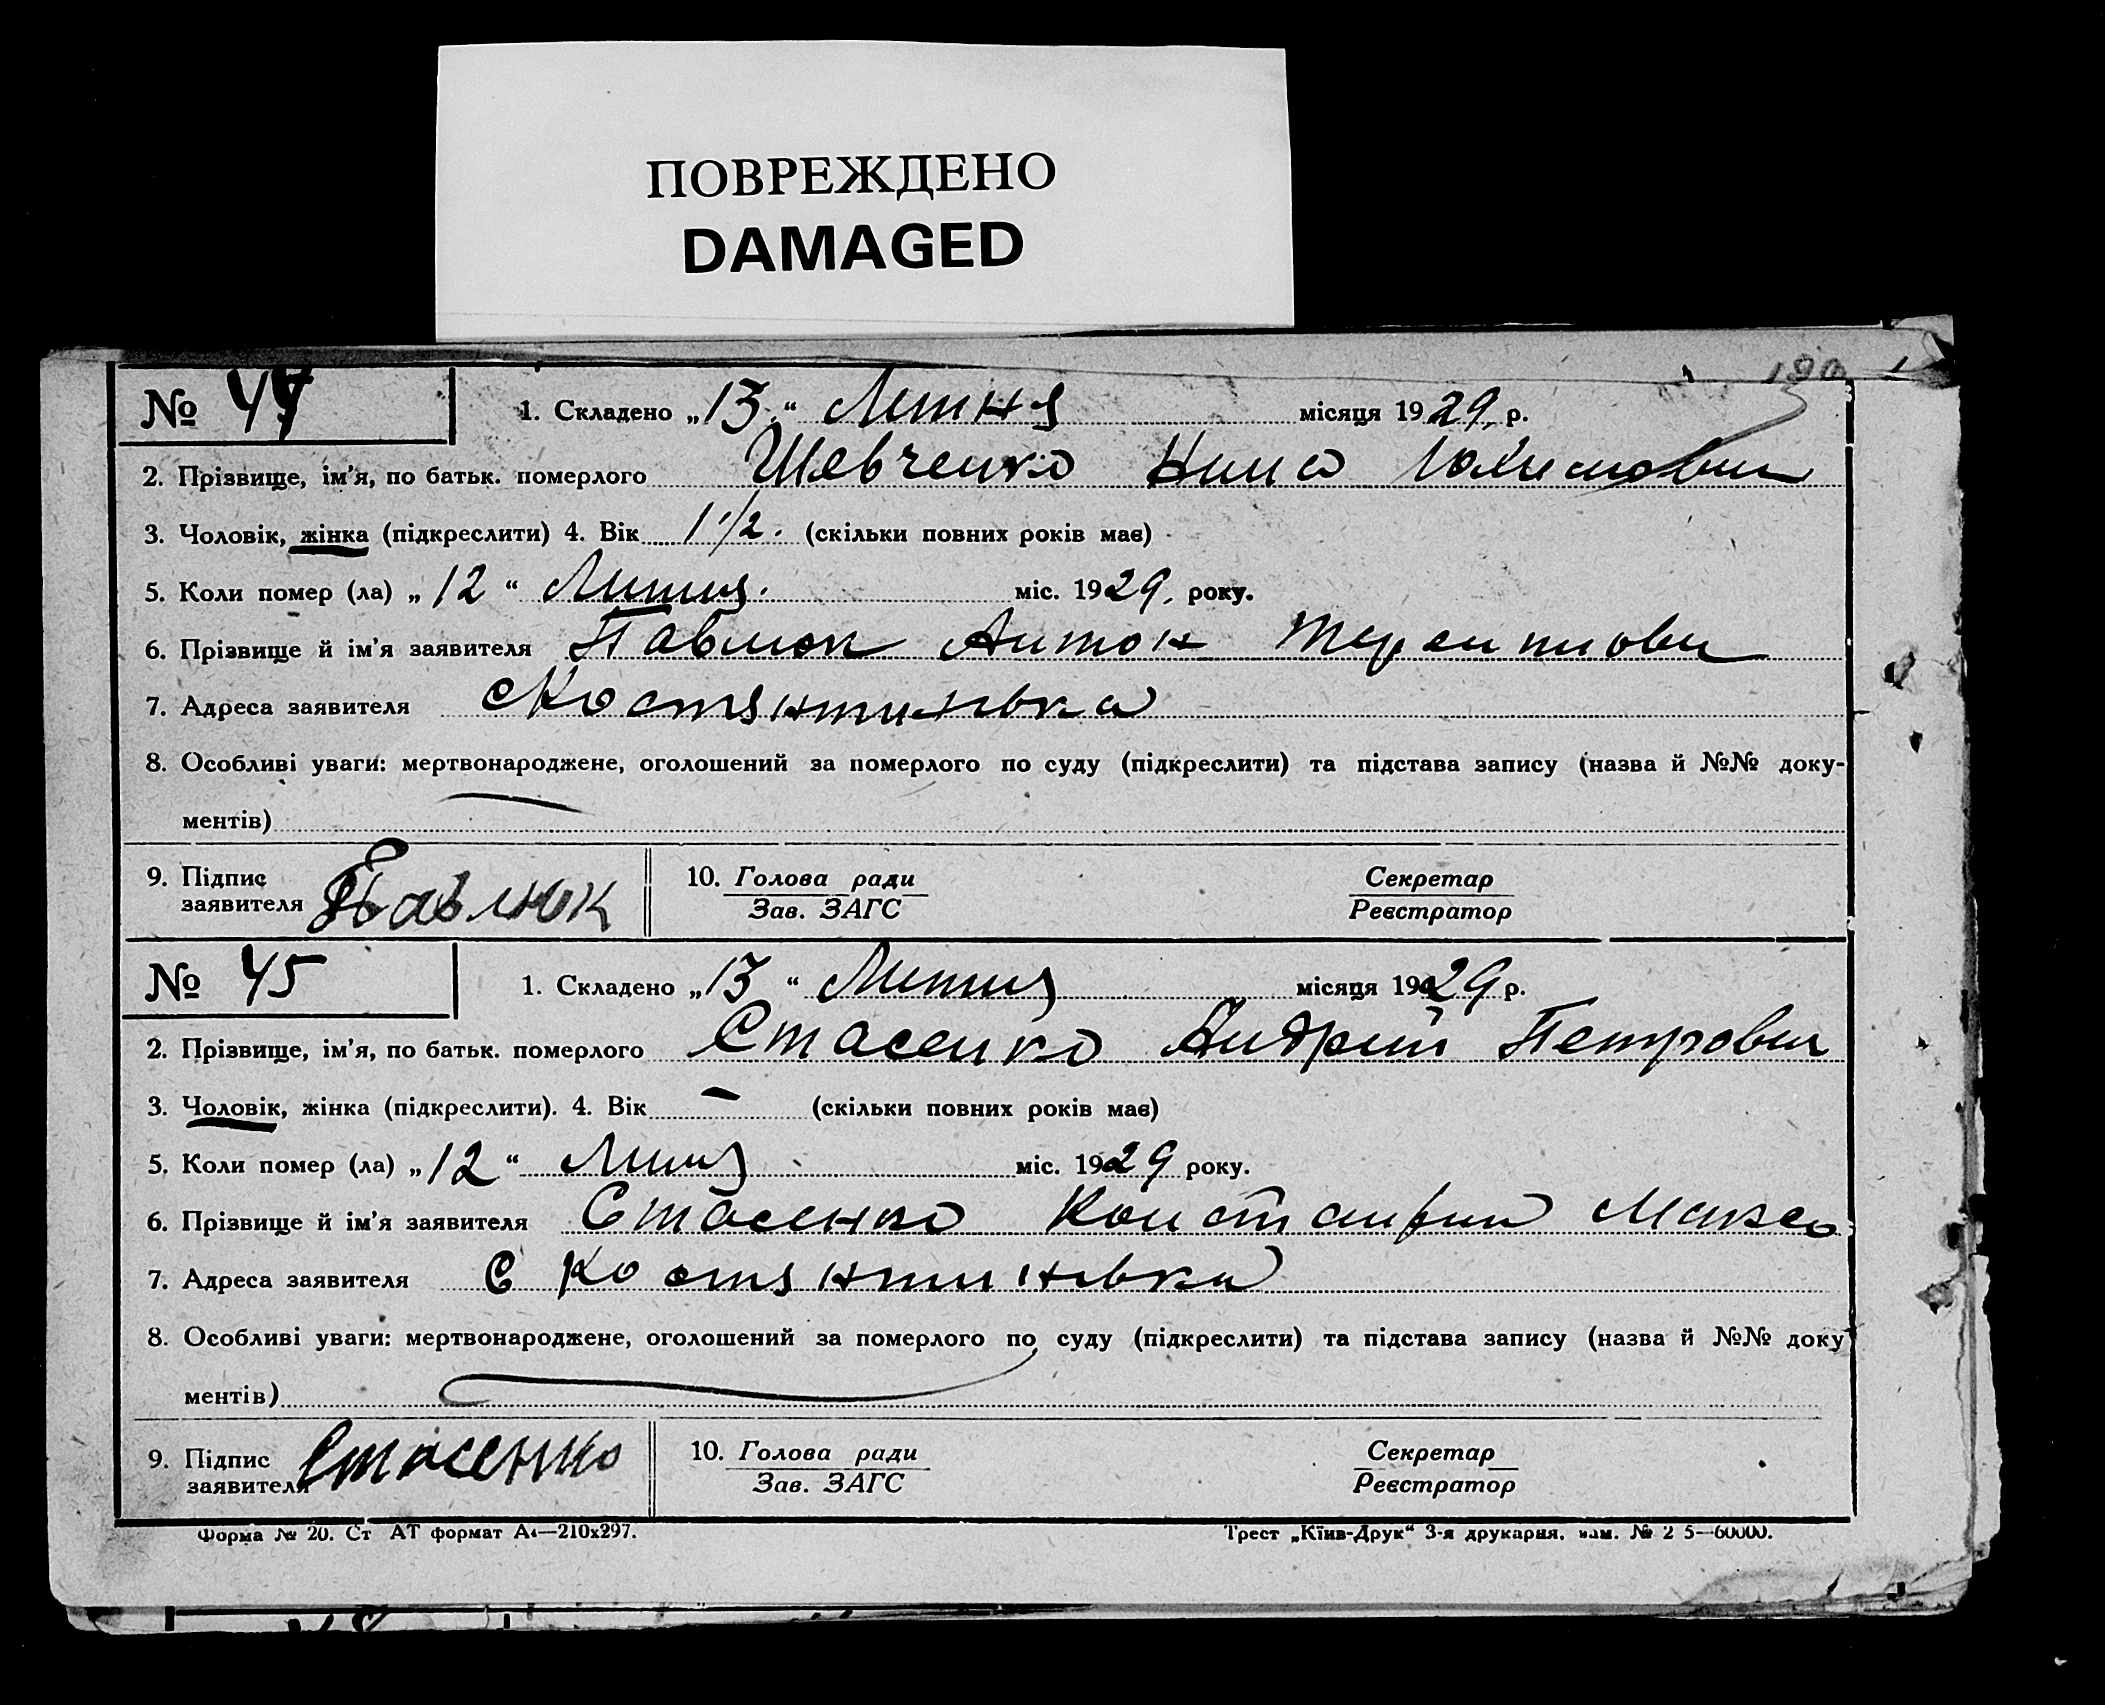 ПОВРЕЖДЕНО
DAMAGED
190
№ 44
1. Складено „13“ Липня місяця 1929 р.
2. Прізвище, ім'я, по батьк. померлого Шевченко Нина
3. Чоловік, жінка (підкреслити) 4. Вік 1 1/2. (скільки повних років має)
5. Коли помер (ла) „12“ Липня. міс. 1929. року.
6. Прізвище й ім'я заявителя Павлюк Антон
7. Адреса заявителя с Костянтинівка
8. Особливі уваги: мертвонароджене, оголошений за померлого по суду (підкреслити) та підстава запису (назва й №№ доку-
ментів)
9. Підпис заявителя Павлюк
10. Голова ради
Зав. ЗАГС
Секретар
Реєстратор
№ 45
1. Складено „13“ Липня місяця 1929 р.
2. Прізвище, ім'я, по батьк. померлого Стасенко Андрій Петрович
3. Чоловік, жінка (підкреслити). 4. Вік – (скільки повних років має)
5. Коли помер (ла) „12“ Липня міс. 1929 року.
6. Прізвище й ім'я заявителя Стасенко
7. Адреса заявителя с Костянтинівка
8. Особливі уваги: мертвонароджене, оголошений за померлого по суду (підкреслити) та підстава запису (назва й №№ доку
ментів)
9. Підпис заявителя Стасенко
10. Голова ради
Зав. ЗАГС
Секретар
Реєстратор
Форма № 20. Ст АТ формат А4—210x297.
Трест „Київ-Друк“ 3-я друкарня. зам. № 2 5—60000.